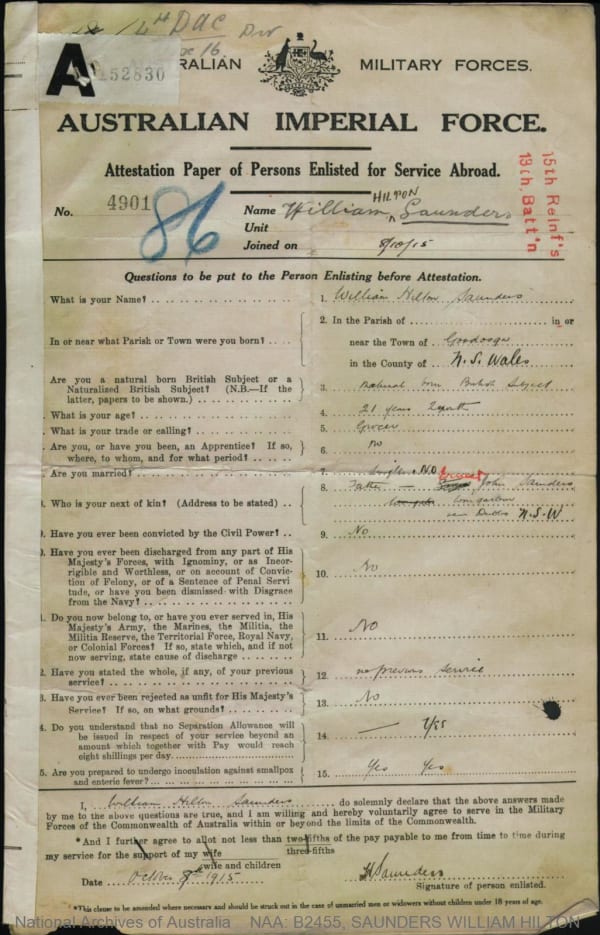 4th DAC Div
16
A
52830
AUSTRALIAN MILITARY FORCES.
AUSTRALIAN IMPERIAL FORCE.
Attestation Paper of Persons Enlisted for Service Abroad.
15th Reinf's
13th, Batt'n
No. 4901
86
Name William HILTON Saunders
Unit
Joined on 8/10/15
Questions to be put to the Person Enlisting before Attestation.
What is your Name? 1. William Hilton Saunders
In or near what Parish or Town were you born? 2. In the Parish of in or
near the Town of Goodooga
in the County of N.S. Wales
Are you a natural born British Subject or a
Naturalized British Subject? (N.B.—If the
latter, papers to be shown.) 3. Natural born British Subject
What is your age? 4. 21 years
What is your trade or calling? 5. Grocer
Are you, or have you been, an Apprentice? If so,
where, to whom, and for what period? 6. no
Are you married? 7. Single NO
Who is your next of kin? (Address to be stated) 8. Father — John Saunders
near Dubbo N.S.W
Have you ever been convicted by the Civil Power? 9. No
Have you ever been discharged from any part of His
Majesty's Forces, with Ignominy, or as Incor-
rigible and Worthless, or on account of Convic-
tion of Felony, or of a Sentence of Penal Servi
tude, or have you been dismissed with Disgrace
from the Navy? 10. No
Do you now belong to, or have you ever served in, His
Majesty's Army, the Marines, the Militia, the
Militia Reserve, the Territorial Force, Royal Navy,
or Colonial Forces? If so, state which, and if not
now serving, state cause of discharge 11. NO
2. Have you stated the whole, if any, of your previous
service? 12. no previous service
3. Have you ever been rejected as unfit for His Majesty's
Service? If so, on what grounds? 13. No
4. Do you understand that no Separation Allowance will
be issued in respect of your service beyond an
amount which together with Pay would reach
eight shillings per day. 14. — Yes
5. Are you prepared to undergo inoculation against smallpox
and enteric fever? 15. Yes Yes
I, William Hilton Saunders do solemnly declare that the above answers made
by me to the above questions are true, and I am willing and hereby voluntarily agree to serve in the Military
Forces of the Commonwealth of Australia within or beyond the limits of the Commonwealth.
*And I further agree to allot not less than two-fifths of the pay payable to me from time to time during
three-fifths
my service for the support of my wife
wife and children
Date October 8th 1915 Saunders
Signature of person enlisted.
*This clause to be amended where necessary and should be struck out in the case of unmarried men or widowers without children under 18 years of age.
National Archives of Australia NAA: B2455, SAUNDERS WILLIAM HILTON